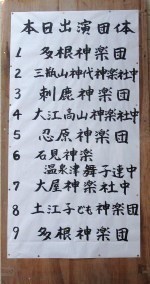 本日出演団体
1 多根神楽団
2 三瓶山神代神楽社中
3 刺鹿神楽団
4 大江高山神楽社中
5 忍原神楽団
6 石見神楽
温泉津舞子連中
7 大屋神楽社中
8 土江子ども神楽団
9 多根神楽団